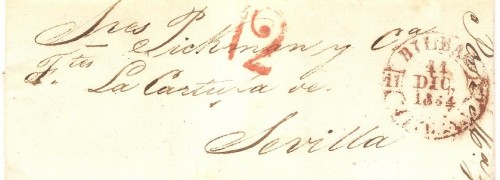 Sres Pickman y Ca
Ftes La Cartuja de
Sevilla
12
BILBAO
11
DIC.
1854